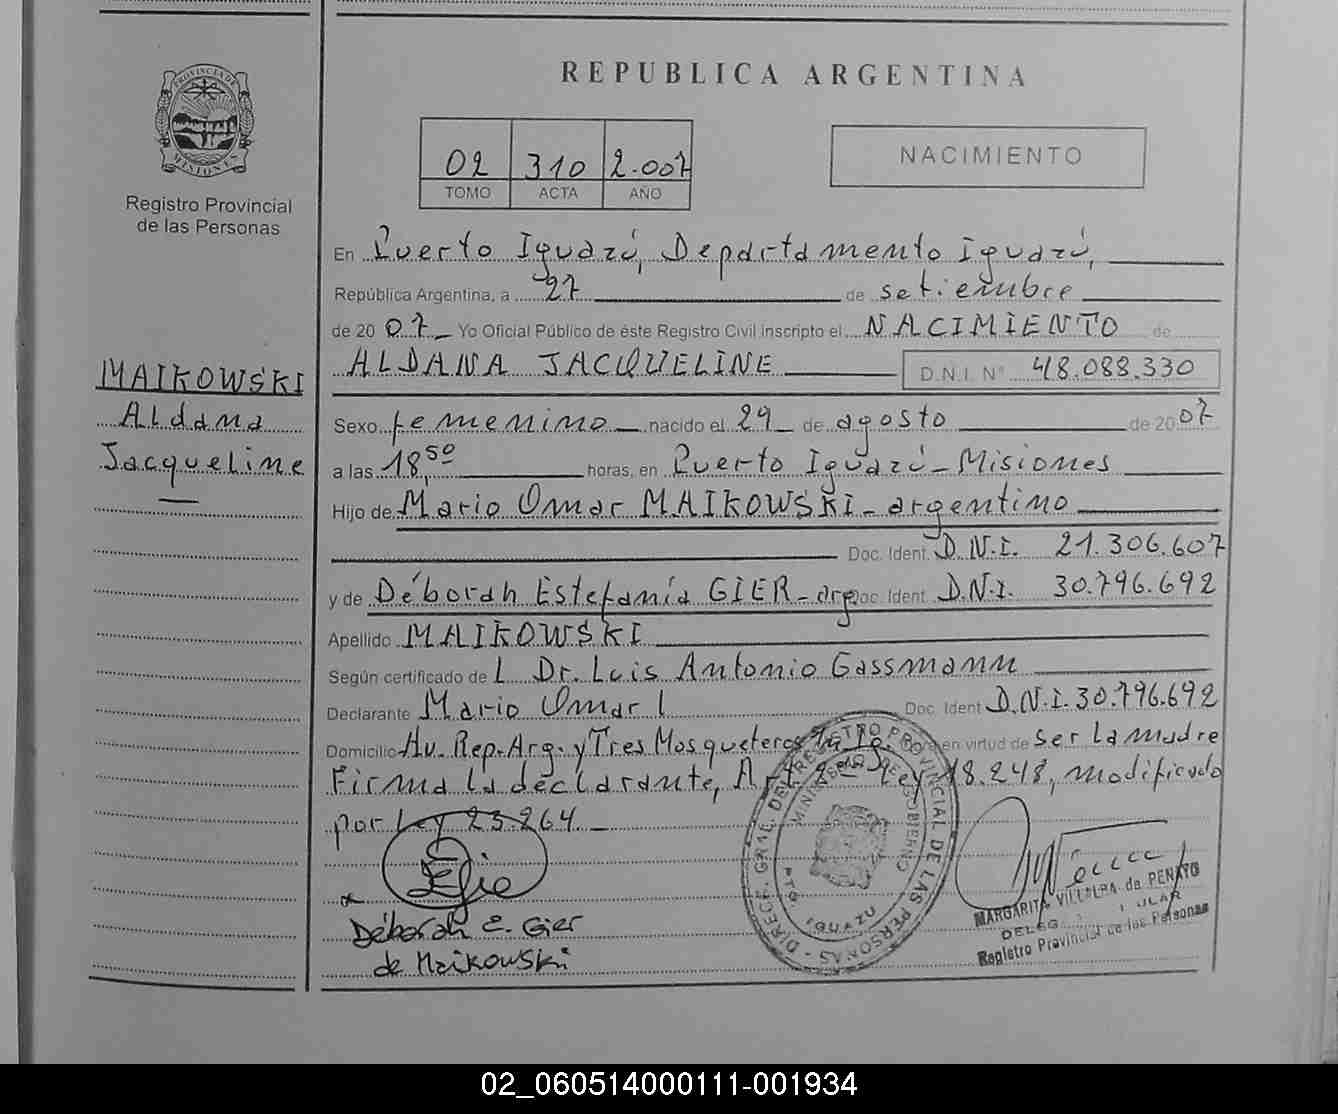 REPUBLICA ARGENTINA
PROVINCIA DE
MISIONES
Registro Provincial
de las Personas
02 310 2.007
TOMO ACTA AÑO
NACIMIENTO
En Puerto Iguazú, Departamento Iguazú,
República Argentina, a 27 de setiembre
de 20 07 Yo Oficial Público de éste Registro Civil inscripto el NACIMIENTO de
ALDANA JACQUELINE D.N.I. N° 48.088.330
MAIKOWSKI
Aldana
Jacqueline
Sexo femenino nacido el 29 de agosto de 20 07
a las 18,50 horas, en Puerto Iguazú - Misiones
Hijo de Mario Omar MAIKOWSKI - argentino
Doc. Ident. D.N.I. 21.306.607
y de Déborah Estefanía GIER - arg. Doc. Ident. D.N.I. 30.796.692
Apellido MAIKOWSKI
Según certificado de L Dr. Luis Antonio Gassmann
Declarante Mario Omar l Doc. Ident D.N.I. 30.796.692
Domicilio Av. Rep. Arg. y Tres Mosqueteros en virtud de ser la madre
Firma la declarante, Art. Ley 18.248, modificado
por Ley 23.264
Déborah E. Gier
de Maikowski
DIRECC. GRAL. DEL REGISTRO PROVINCIAL DE LAS PERSONAS
MINISTERIO DE GOBIERNO
PTO. IGUAZU
MARGARITA VILLALBA de PENAYO
Registro Provincial de las Personas
02_060514000111-001934